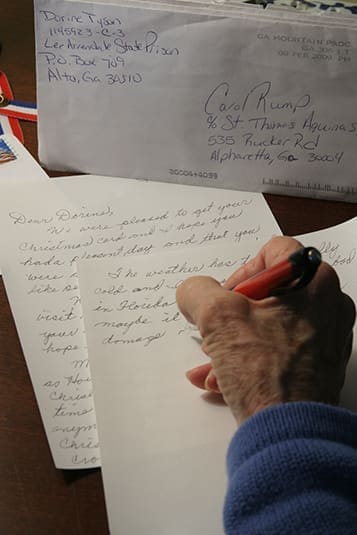 Dorine Tyson
1145923-C-3
Lee Arrendale State Prison
P.O. Box 709
Alto, Ga 30510
GA MOUNTAIN PADC
GA 305 1 T
09 FEB 2009 PM
Carol Rump
c/o St. Thomas Aquinas
535 Rucker Rd
Alpharetta, Ga 30004
30004+6099
Dear Dorine,
We were pleased to get your
Christmas card and I hope you
had a pleasant day and that you
were
like se
visit
your
hope
M
as Ho
Chris
time
anym
Chris
cro
The weather has
cold and
in Florida
maybe it
damage